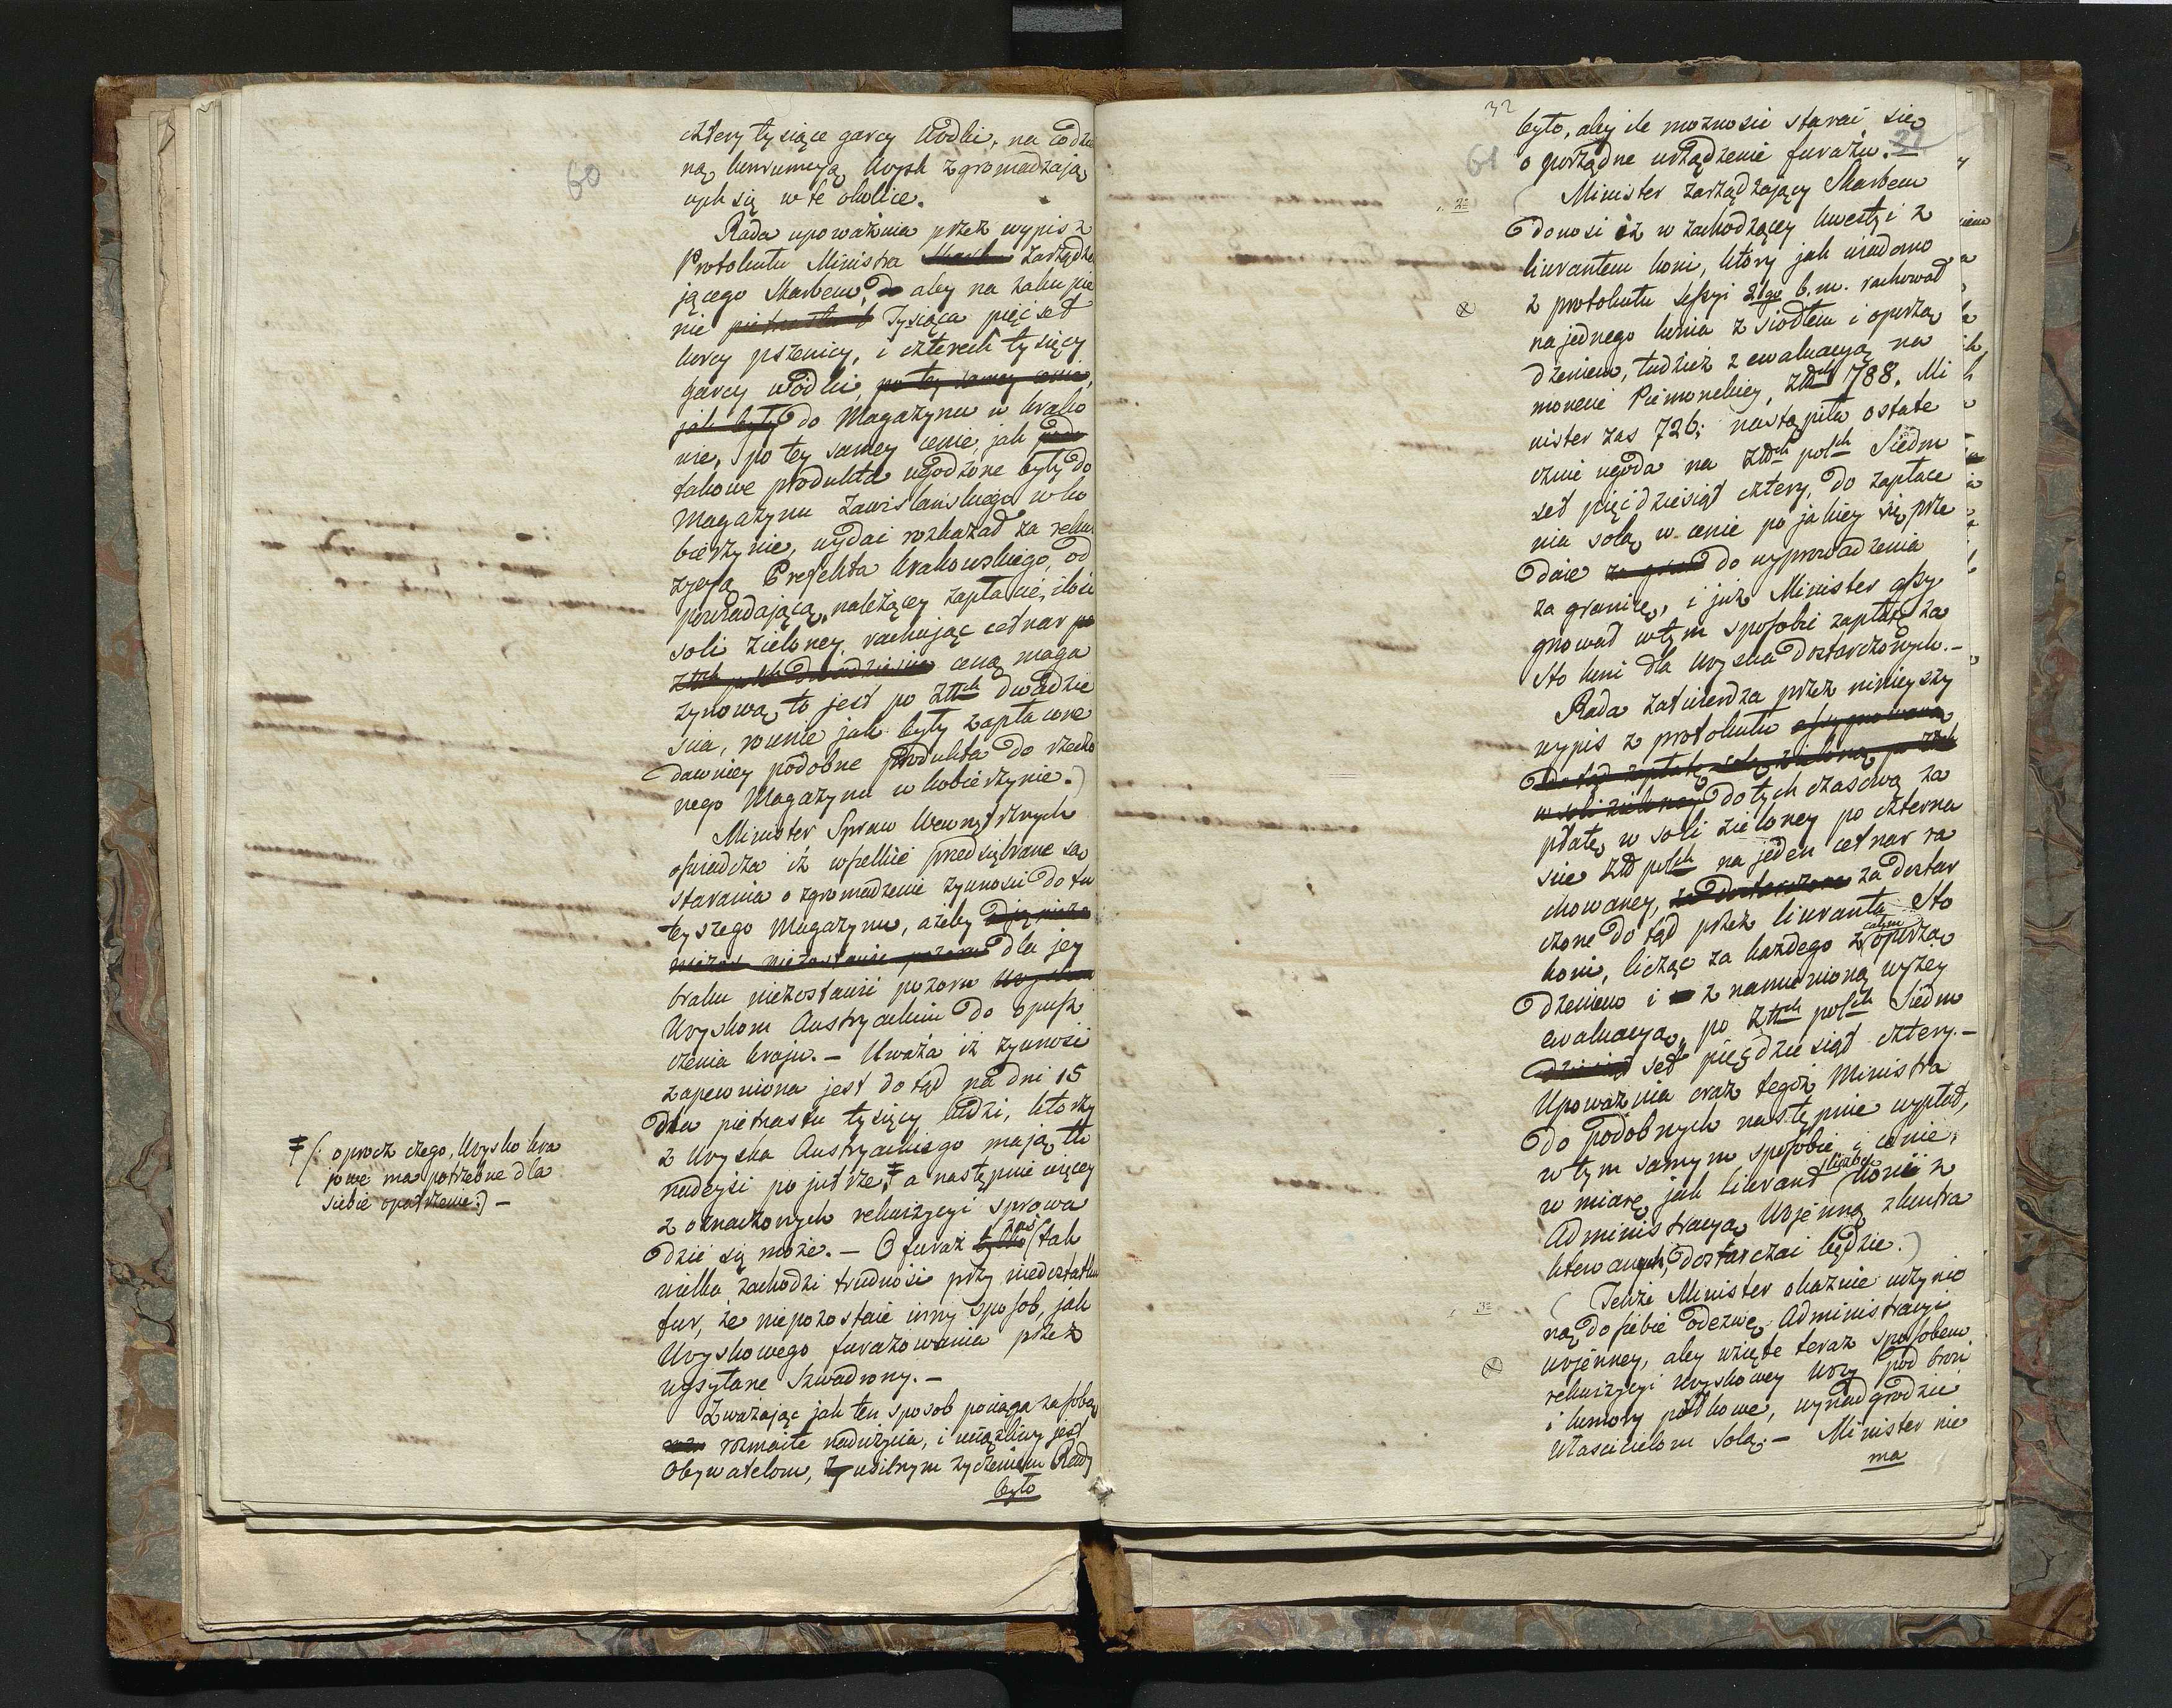 60
cztery tysiące garcy Wodki, na codzien
ną konsumcyą Woysk zgromadzają
cych się w te okolice.
Rada upoważnia przez wypis z
Protokułu Ministra Skarbu zarządza
jącego Skarbem, aby na zakupie
nie piętnastu Tysiąca pięć set
korcy pszenicy, i czterech tysięcy
garcy wódki, po tey samey cenie,
jak były do Magazynu w krako
wie, po tey samey cenie, jak
takowe produkta ugodzone były do
Magazynu Zawiślańskiego w Ko
bierzynie, wydać rozkazał za rekwi
zycyą Prefekta krakowskiego, od
powiadaiącą należącey zapłacie, ilość
soli zieloney, rachując cetnar po
złtch polch dwadzieścia ceną maga
zynową to jest po złtch dwadzie
ścia, rownie jak były zapłacone
dawniey podobne produkta do rzeczo
nego Magazynu w kobierzynie.)
Minister Spraw Wewnętrznych
oświadcza iż wszelkie przedsiębrane są
starania o zgromadzenie żywności do tu
teyszego Magazynu, ażeby
niezostawić pozoru dla jey
braku niezostawić pozoru Woyskom
Woyskom Austryackim do opusz
czenia kraju. – Uważa iż żywność
zapewniona jest dotąd na dni 15
dla piętnastu tysięcy ludzi, którzy
z Woyska Austryackiego mają tu
nadeyść pojutrze, ‡ a następnie więcey
z oznaczonych rekwizycyi sprowa
dzić się może. – O furaż tylko zaś tak
wielka zachodzi trudność przy niedostatku
fur, że niepozostaie inny sposob, jak
Woyskowego furażowania przez
wysyłane Szwadrony. –
Zważając jak ten sposob pociąga za sobą
rozmaite nadużycia, i uciążliwy jest
Obywatelom, usilnym życzeniem Rady
było
‡ (: oprocz czego, Woysko kra
jowe ma potrzebne dla
siebie opatrzenie:) –
32
61
było, aby ile możności starać się
o porządne urządzenie furażu.
2o
Minister zarządzający Skarbem
donosi iż w zachodzącey kwestyi z
liwrantem koni, który jak wiadomo
z protokułu sessyi 21go b.m. rachował
na jednego konia z siodłem i oporzą
dzeniem, tudzież z ewaluacyą na
monecie Piemonckiey, złtch 788. Mi
nister zaś 726; nastąpiła ostate
cznie ugoda na złtch polch Siedm
set pięćdziesiąt cztery, do zapłace
nia solą w cenie po jakiey się prze
daie za gran do wyprowadzenia
za granicę, i już Minister assy
gnował w tym sposobie zapłatę za
Sto koni dla Woyska dostarczonych. –
Rada zatwierdza przez ninieyszy
wypis z protokułu assygnowaną
dotąd zapłatę solą zieloną po złtch
w soli zieloney dotychczasową za
płatę w soli zieloney po czterna
ście złt polch na jeden cetnar ra
chowaney, za dostarczone za dostar
czone dotąd przez liwranta Sto
koni, licząc za każdego z całym oporzą
dzeniem i z namienioną wyżey
ewaluacyą, po złtch polch Siedm
dziesiąt set pięćdziesiąt cztery. –
Upoważnia oraz tegoż Ministra
do podobnych następnie wypłat,
w tym samym sposobie i cenie,
w miarę jak liwrant liczbę konii z
Administracyą Wojenną zkontra
ktowanych, dostarczać będzie.)
3o
Tenże Minister okaznie uczynio
ną do siebie odezwę Administracyi
wojenney, aby wzięte teraz sposobem
rekwizycyi woyskowey Wozy pod broń
i komory pułkowe, wynadgrodzić
właścicielom Solą. – Minister nie
ma